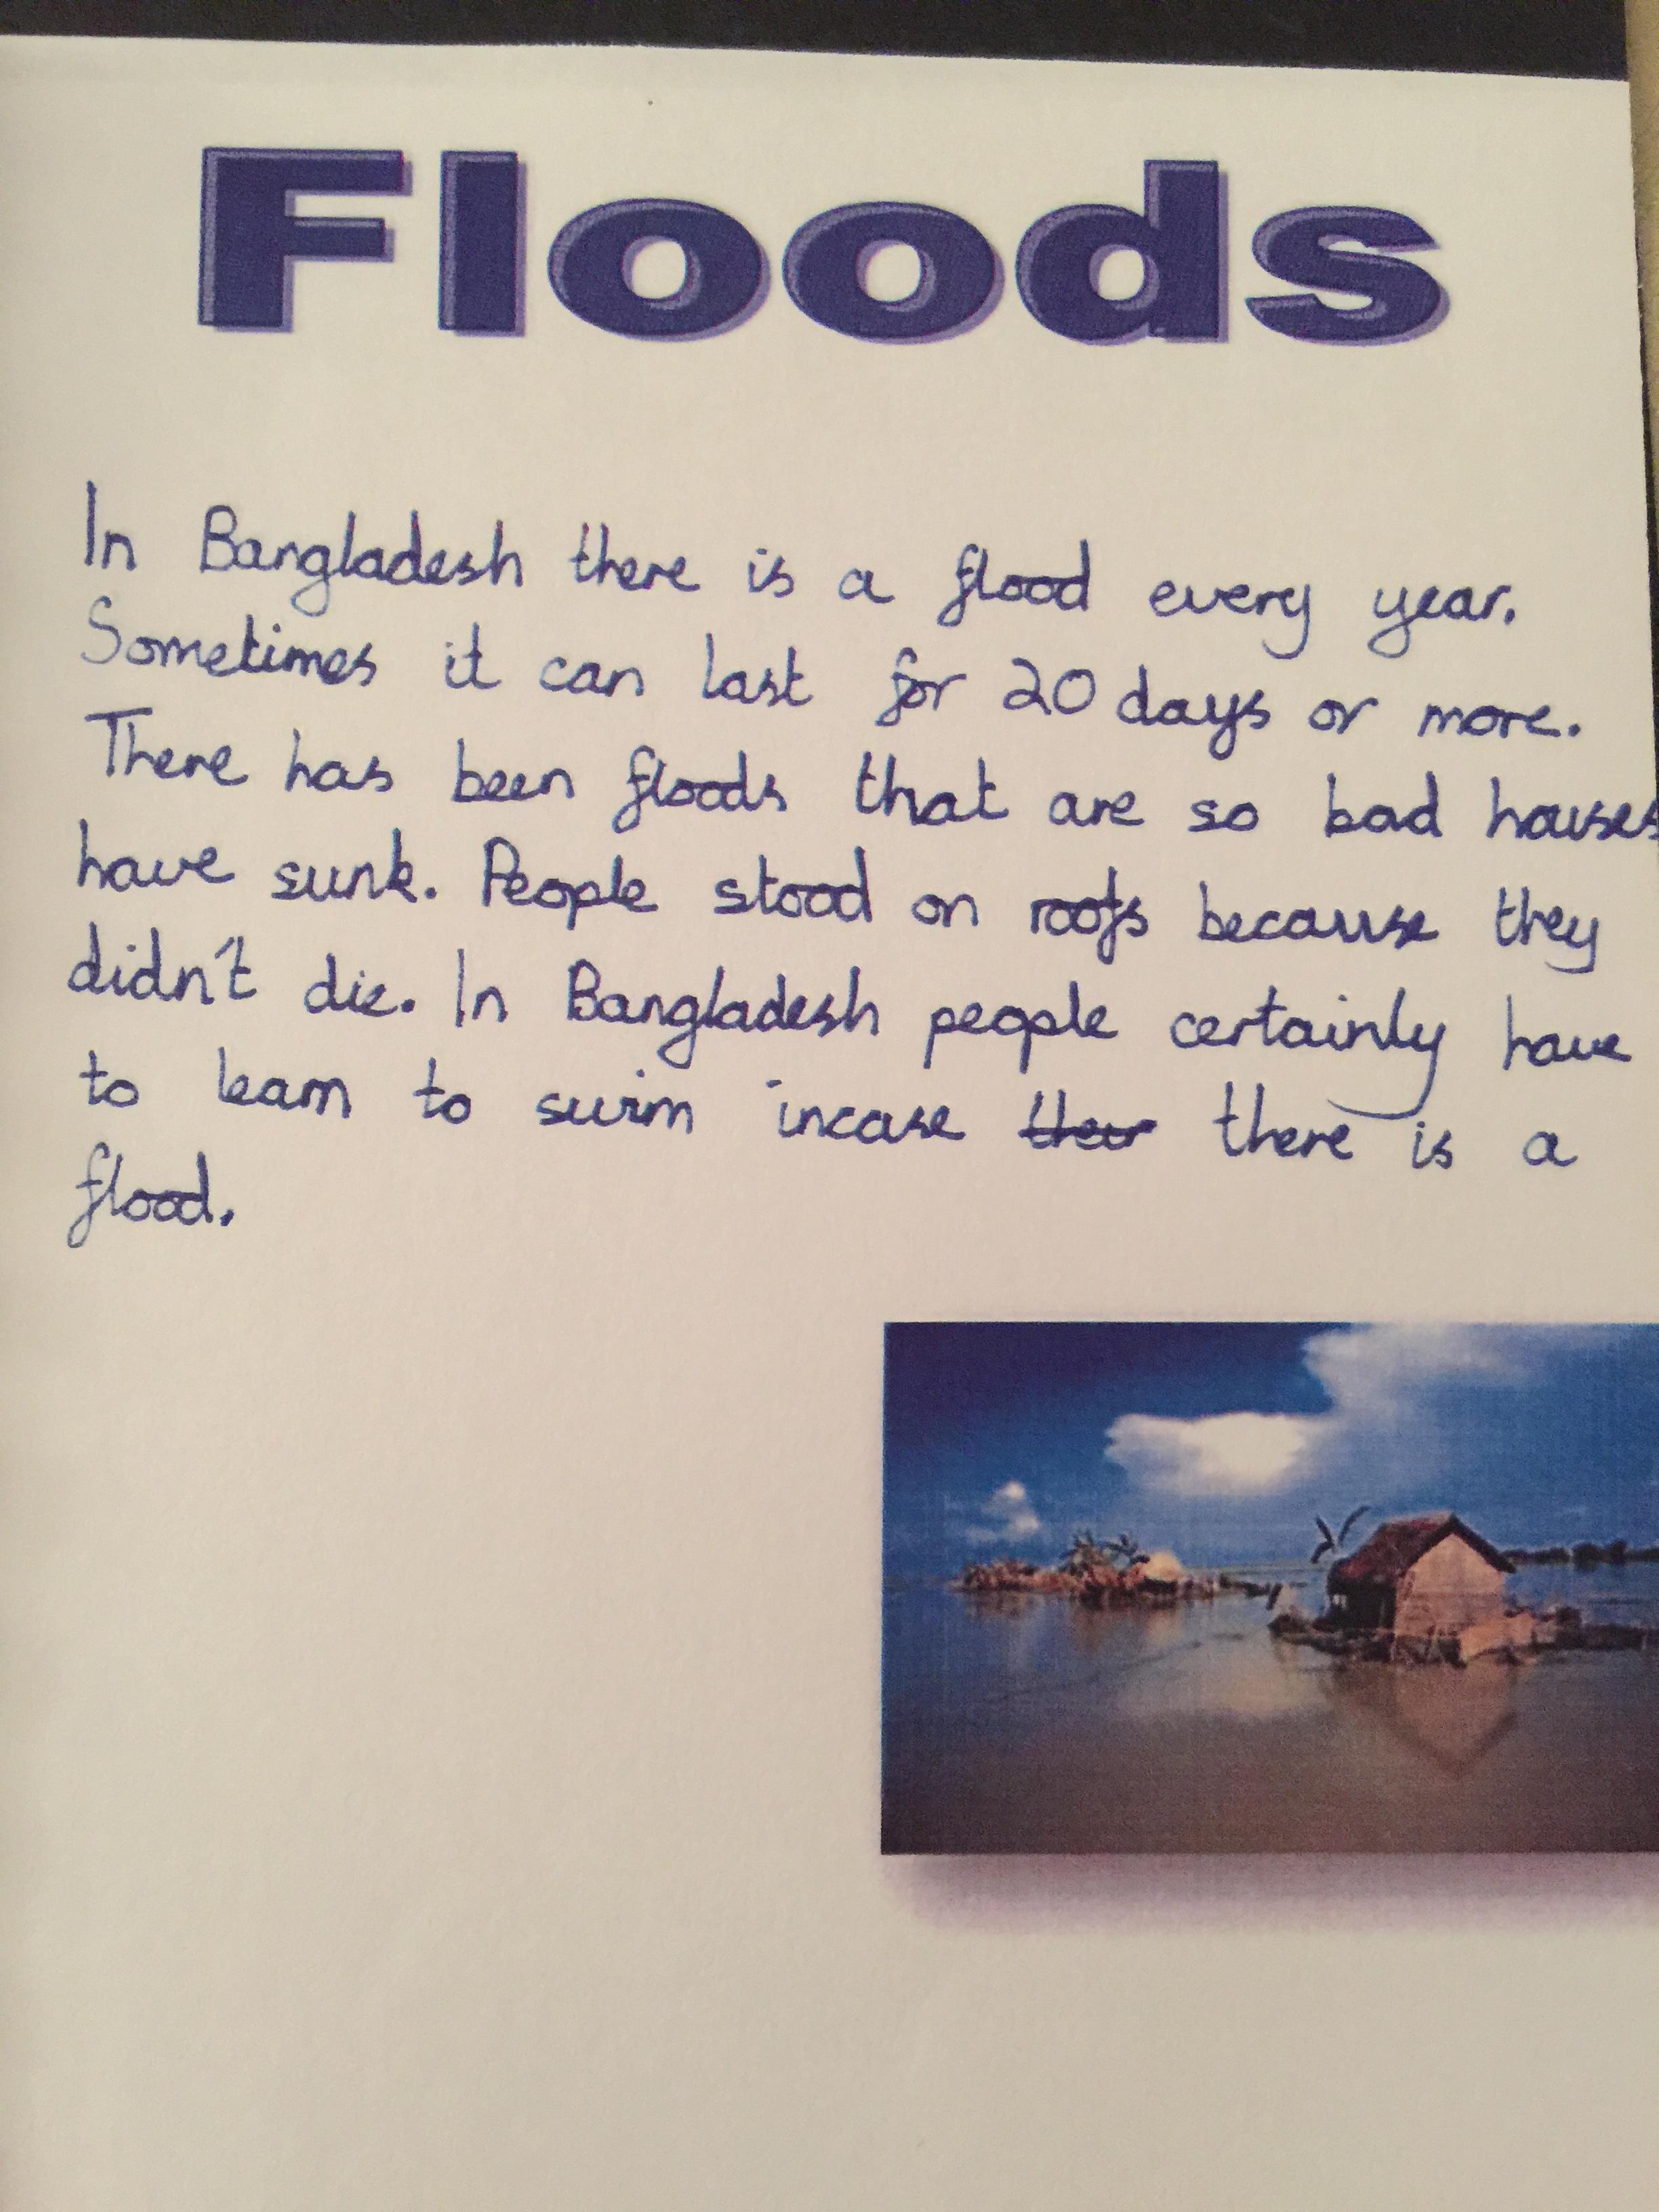 Floods
In Bangladesh there is a flood every year.
Sometimes it can last for 20 days or more.
There has been floods that are so bad houses
have sunk. People stood on roofs because they
didn't die. In Bangladesh people certainly have
to learn to swim incase ~~ther~~ there is a
flood.